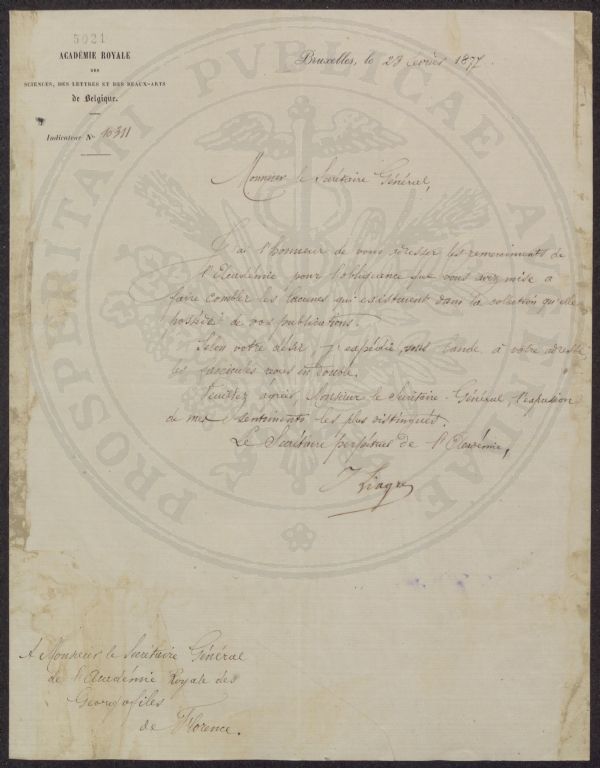 5021
ACADÉMIE ROYALE
DES
SCIENCES, DES LETTRES ET DES BEAUX-ARTS
de Belgique.
Indicateur N° 10311
Bruxelles, le 23 février 1877.
Monsieur le Secrétaire Général,
J'ai l'honneur de vous adresser les remerciments de
l'Académie pour l'obligeance que vous avez mise à
faire combler les lacunes qui existaient dans la collection qu'elle
possède de vos publications.
Selon votre désir, j'expédie, sous bande, à votre adresse
les fascicules reçus en double.
Veuillez agréer, Monsieur le Secrétaire-Général, l'expression
de mes sentiments les plus distingués.
Le Secrétaire perpétuel de l'Académie,
J Liagre
A Monsieur le Secrétaire Général
de l'Académie Royale des
Georgofiles
de Florence.
PROSPERITATI PUBLICAE AUGENDAE